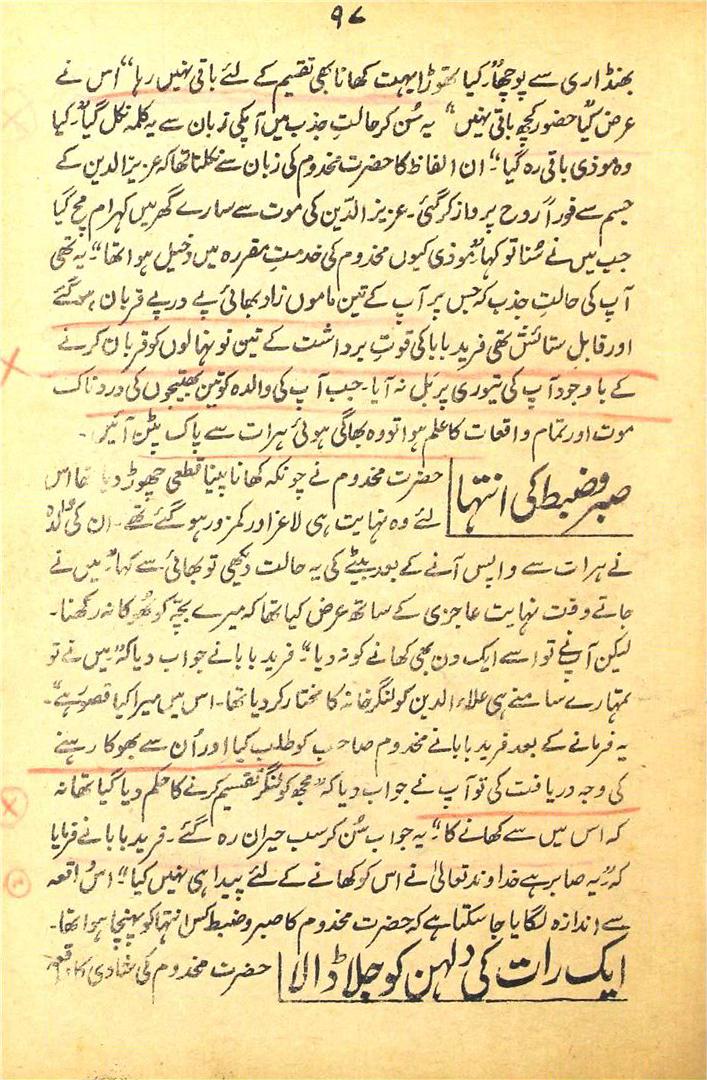 ۹۷
بھنڈاری سے پوچھا "کیا تھوڑا بہت کھانا بھی تقسیم کے لئے باقی نہیں رہا" اس نے
عرض کیا "حضور کچھ باقی نہیں" یہ سُن کر حالتِ جذب میں آپکی زبان سے یہ کلمہ نکل گیا "کیا
وہ موذی باقی رہ گیا"۔ ان الفاظ کا حضرت مخدوم کی زبان سے نکلنا تھا کہ عزیز الدین کے
جسم سے فوراً روح پرواز کر گئی۔ عزیز الدّین کی موت سے سارے گھر میں کہرام مچ گیا
جب میں نے سُنا تو کہا "موذی کیوں مخدوم کی خدمتِ مقررہ میں دخیل ہوا تھا"۔ یہ تھی
آپ کی حالتِ جذب کہ جس پر آپ کے تین ماموں زاد بھائی پے در پے قربان ہو گئے
اور قابلِ ستائش تھی فرید بابا کی قوتِ برداشت کے تین نونہالوں کو قربان کرنے
کے باوجود آپ کی تیوری پر بَل نہ آیا۔ جب آپ کی والدہ کو تین بھتیجوں کی دردناک
موت اور تمام واقعات کا علم ہوا تو وہ بھاگی ہوئی ہرات سے پاک پٹن آئیں۔
صبر و ضبط کی انتہا
حضرت مخدوم نے چونکہ کھانا پینا قطعی چھوڑ دیا تھا اس
لئے وہ نہایت ہی لاغر اور کمزور ہو گئے تھے۔ ان کی والدہ
نے ہرات سے واپس آنے کے بعد بیٹے کی یہ حالت دیکھی تو بھائی سے کہا "میں نے
جاتے وقت نہایت عاجزی کے ساتھ عرض کیا تھا کہ میرے بچّہ کو بھُوکا نہ رکھنا۔
لیکن آپنے تو اسے ایک دن بھی کھانے کو نہ دیا"۔ فرید بابا نے جواب دیا کہ "میں نے تو
تمہارے سامنے ہی علاء الدین کو لنگر خانہ کا مختار کر دیا تھا۔ اس میں میرا کیا قصور ہے"۔
یہ فرمانے کے بعد فرید بابا نے مخدوم صاحب کو طلب کیا اور اُن سے بھوکا رہنے
کی وجہ دریافت کی تو آپ نے جواب دیا کہ "مجھ کو لنگر تقسیم کرنے کا حکم دیا گیا تھا نہ
کہ اس میں سے کھانے کا"۔ یہ جواب سُن کر سب حیران رہ گئے۔ فرید بابا نے فرمایا
کہ "یہ صابر ہے خداوند تعالیٰ نے اس کو کھانے کے لئے پیدا ہی نہیں کیا"۔ اس واقعہ
سے اندازہ لگایا جا سکتا ہے کہ حضرت مخدوم کا صبر و ضبط کس انتہا کو پہنچا ہوا تھا۔
ایک رات کی دلہن کو جلا ڈالا
حضرت مخدوم کی شادی کا واقعہ